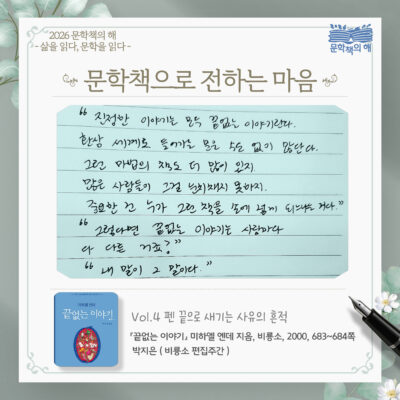 2026 문학책의 해
- 삶을 읽다, 문학을 읽다 -
문학책의 해
문학책으로 전하는 마음
“ 진정한 이야기는 모두 끝없는 이야기란다.
환상 세계로 들어가는 문은 수도 없이 많단다.
그런 마법의 책도 더 많이 있지
많은 사람들이 그걸 눈치채지 못하지.
중요한 건 누가 그런 책을 손에 넣게 되느냐는 거다.”
“그렇다면 끝없는 이야기는 사람마다
다 다른 거죠?”
“ 내 말이 그 말이다.”
끝없는 이야기
Vol.4 펜 끝으로 새기는 사유의 흔적
『끝없는 이야기』 미하엘 엔데 지음, 비룡소, 2000, 683~684쪽
박지은 ( 비룡소 편집주간 )